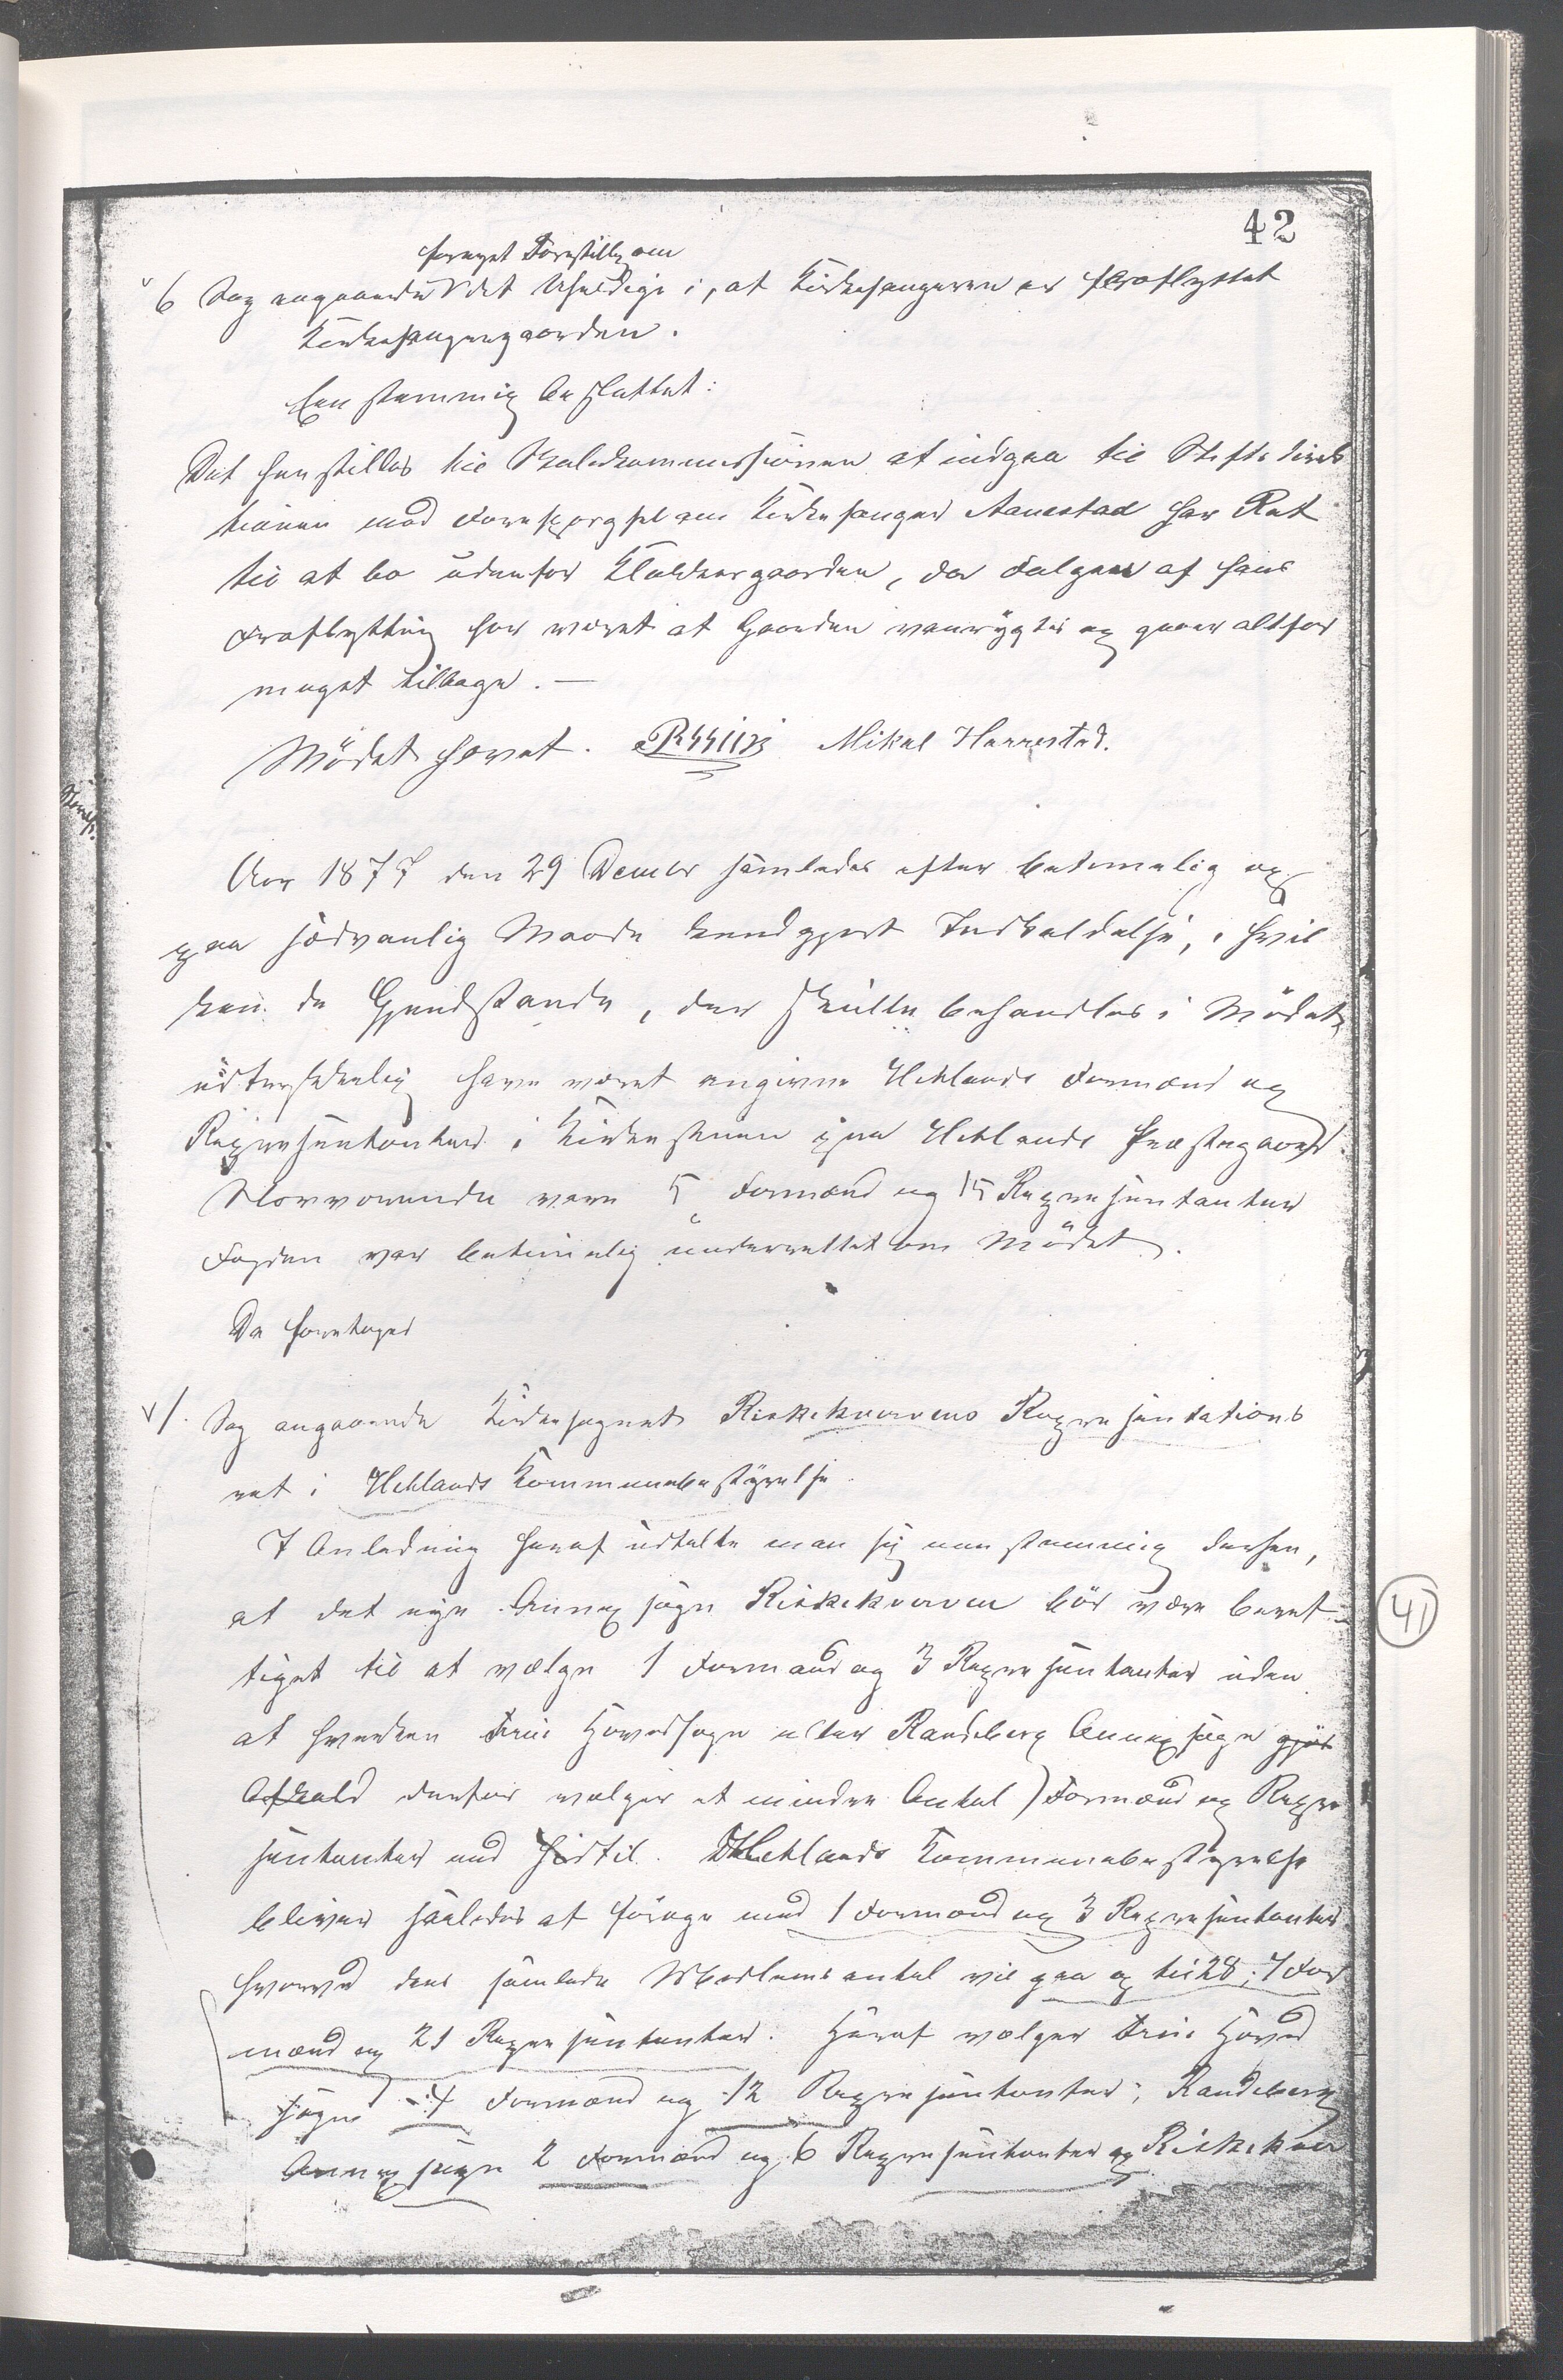 42
fornyet Forestilling om
6 Sag angaaende det Uheldige i, at Kirkesangeren er fraflyttet
Kirkesangergaarden.
Eenstemmig besluttet:
Det henstilles til Skolekommissionen at indgaa til Stiftsdirek
tionen med Forespørgsel om Kirkesanger Aanestad har Ret
til at bo udenfor Klokkergaarden, da Følgen af hans
Fraflytting har været at Gaarden vanrygtes og gaaer altfor
meget tilbage. —
Mødet hævet. Mikal Harrestad.
Aar 1877 den 29 Decmbr samledes efter betimelig og
paa sædvanlig Maade kundgjort Indkaldelse, i hvil
ken de Gjendstande, der skulle behandles i Mødet,
udtrykkelig have været angivne Hetlands Formænd og
Repræsentanter i Kirkestuen paa Hetlands Præstegaard.
Nærværende vare 5 Formænd og 15 Repræsentanter
Fogden var betimelig underrettet om Mødet.
Da foretoges
1. Sag angaaende Kirkesognet Riskekvervens Repræsentations
ret i Hetlands Kommunebestyrelse.
I Anledning heraf udtalte man sig eenstemmig derhen,
at det nye Annexsogn Riskekverven bør være beret
tiget til at vælge 1 Formand og 3 Repræsentanter uden
at hverken Frue Hovedsogn eller Randeberg Annexsogn gjør
Afkald derfor vælger et mindre Antal Formænd og Repræ
sentanter end hidtil. Hetlands Kommunebestyrelse
bliver saaledes at forøge med 1 Formand og 3 Repræsentanter
hvorved dens samlede Medlemsantal vil gaa op til 28; 7 For
mænd og 21 Repræsentanter. Heraf vælger Frue Hoved
sogn 4 Formænd og 12 Repræsentanter, Randeberg
Annexsogn 2 Formænd og 6 Repræsentanter og Riskekver
41